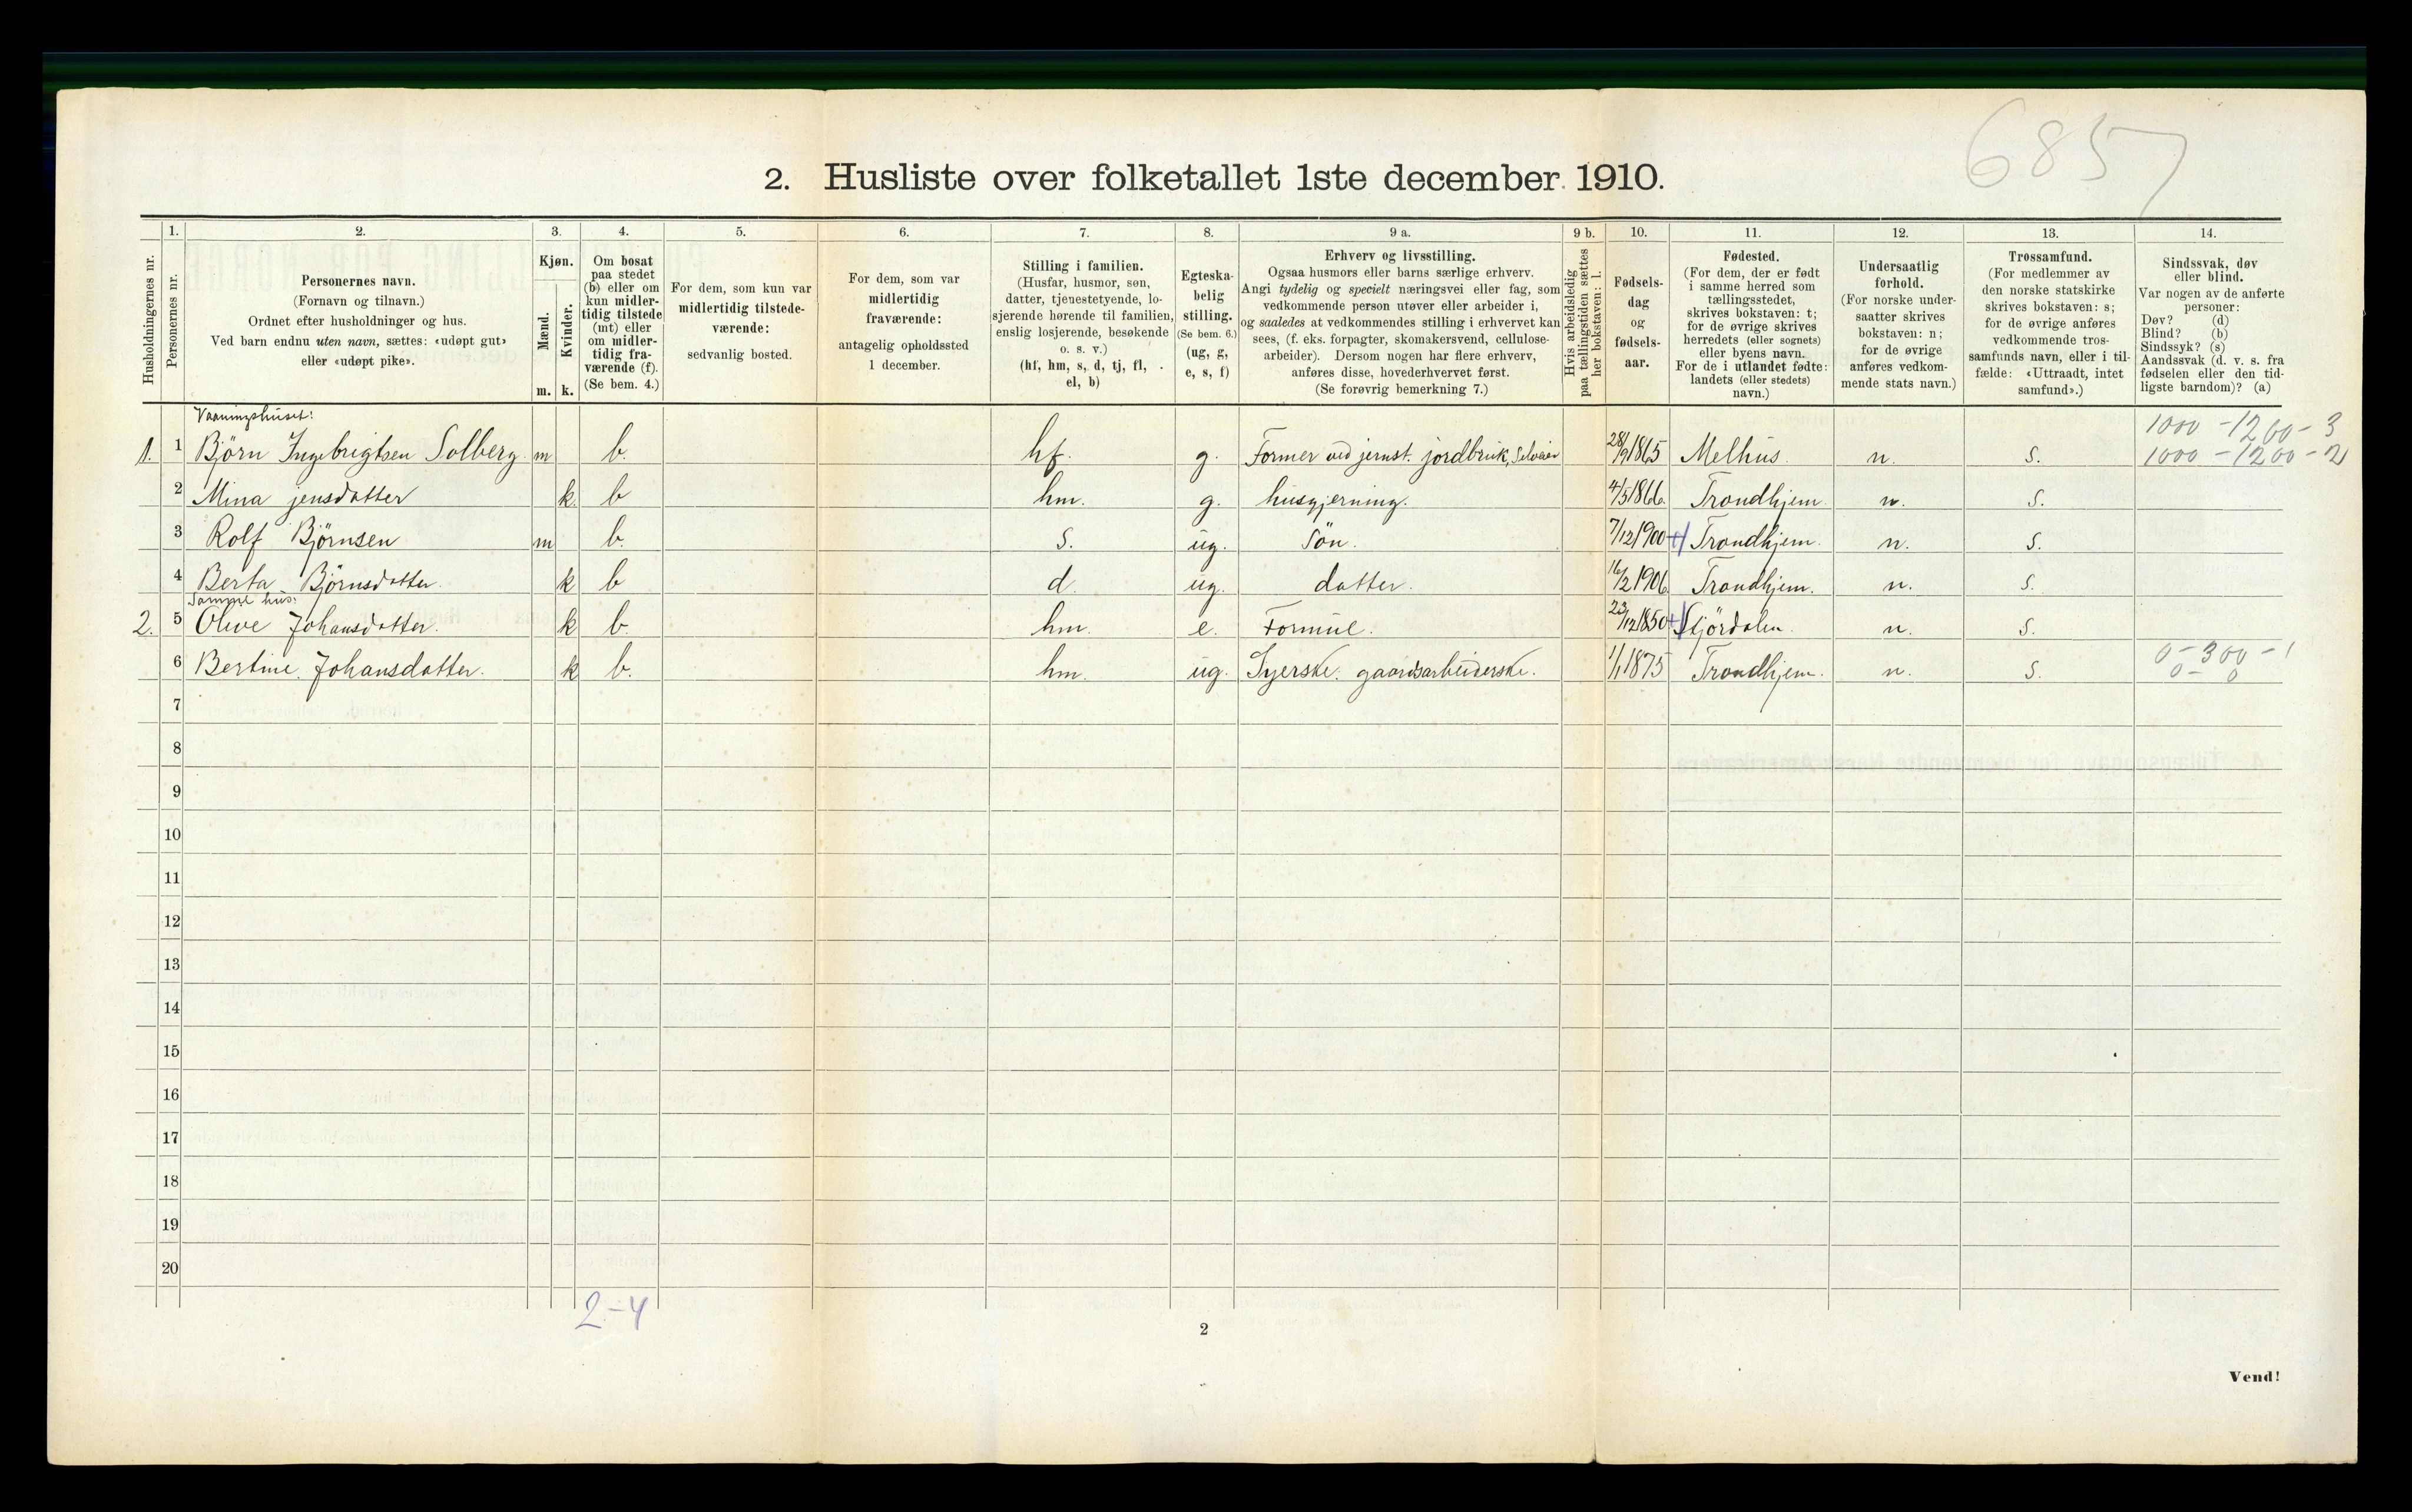 6857
2. Husliste over folketallet 1ste december 1910.
Husholdningernes nr.
1. Personernes nr.
2. Personernes navn.
(Fornavn og tilnavn.)
Ordnet efter husholdninger og hus.
Ved barn endnu uten navn, sættes: «udøpt gut»
eller «udøpt pike».
3. Kjøn.
Mænd. m.
Kvinder. k.
4. Om bosat
paa stedet
(b) eller om
kun midler-
tidig tilstede
(mt) eller
om midler-
tidig fra-
værende (f).
(Se bem. 4.)
5. For dem, som kun var
midlertidig tilstede-
værende:
sedvanlig bosted.
6. For dem, som var
midlertidig
fraværende:
antagelig opholdssted
1 december.
7. Stilling i familien.
(Husfar, husmor, søn,
datter, tjenestetyende, lo-
sjerende hørende til familien,
enslig losjerende, besøkende
o. s. v.)
(hf, hm, s, d, tj, fl,
el, b)
8. Egteska-
belig
stilling.
(Se bem. 6.)
(ug, g,
e, s, f)
9 a. Erhverv og livsstilling.
Ogsaa husmors eller barns særlige erhverv.
Angi tydelig og specielt næringsvei eller fag, som
vedkommende person utøver eller arbeider i,
og saaledes at vedkommendes stilling i erhvervet kan
sees, (f. eks. forpagter, skomakersvend, cellulose-
arbeider). Dersom nogen har flere erhverv,
anføres disse, hovederhvervet først.
(Se forøvrig bemerkning 7.)
9 b. Hvis arbeidsledig
paa tællingstiden sættes
her bokstaven: l.
10. Fødsels-
dag
og
fødsels-
aar.
11. Fødested.
(For dem, der er født
i samme herred som
tællingsstedet,
skrives bokstaven: t;
for de øvrige skrives
herredets (eller sognets)
eller byens navn.
For de i utlandet fødte:
landets (eller stedets)
navn.)
12. Undersaatlig
forhold.
(For norske under-
saatter skrives
bokstaven: n;
for de øvrige
anføres vedkom-
mende stats navn.)
13. Trossamfund.
(For medlemmer av
den norske statskirke
skrives bokstaven: s;
for de øvrige anføres
vedkommende tros-
samfunds navn, eller i til-
fælde: «Uttraadt, intet
samfund».)
14. Sindssvak, døv
eller blind.
Var nogen av de anførte
personer:
Døv? (d)
Blind? (b)
Sindssyk? (s)
Aandssvak (d. v. s. fra
fødselen eller den tid-
ligste barndom)? (a)
Vaaningshuset:
1000 - 1200 - 3
1. 1 Björn Ingebrigtsen Solberg. m b. hf. g. Former ved jernst. jordbruk, Selveier 28/9 1865 Melhus. n. s. 1000 - 1200 - 2
2 Mina jensdatter k. b hm. g. husgjerning. 4/5 1866. Trondhjem. n. s.
3 Rolf Björnsen m b. s. ug. Sön. 7/12 1900 Trondhjem. n. s.
4 Berta Björnsdatter. k b d. ug. datter. 16/2 1906 Trondhjem. n. s.
Samme hus:
2. 5 Olive Johansdatter. k b. hm. e. Formue. 23/12 1850 Stjördalen. n. s.
6 Bertine Johansdatter. k b. hm. ug. Syerske. gaardsarbeiderske. 1/1 1875 Trondhjem. n. s. 0 - 300 - 1
0 - 0
7
8
9
10
11
12
13
14
15
16
17
18
19
20
2 - 4
2
Vend!